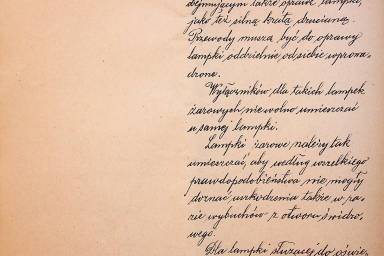 obejmującym także oprawę lampki,
jako też silną kratą drucianą.
Przewody muszą być do oprawy
lampki, oddzielnie od siebie, wprowa-
drone.
Wyłączników dla takich lampek
żarowych, nie wolno umieszczać
u samej lampki.
Lampki żarowe należy tak
umieszczać, aby według wszelkiego
prawdopodobieństwa nie mogły
doznać uszkodzenia także w ra-
zie wybuchów z otworu świdro-
wego.
Dla lampki służącej do oświe-